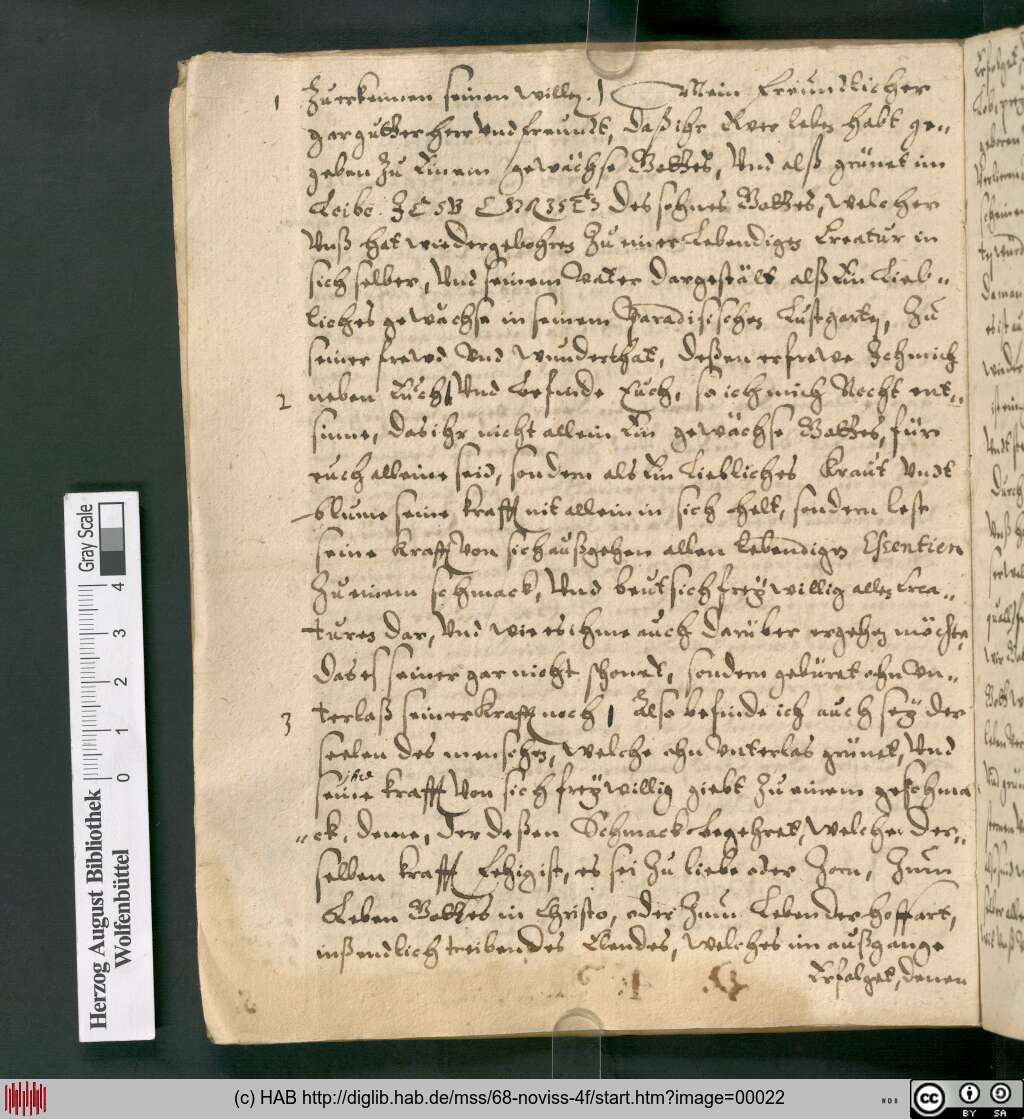 1 Zu erkennen seinen willen.) Mein Freundlicher
gar gutter herr Vnd freundt, daß ihr Ewer leben habt ge„
geben Zu Einem gewächse Gottes, Vnd alß grünet im
Leibe JESV CHRISTJ des sohnes Gottes, welcher
Vnß hat wiedergebohren Zu einer Lebendigen Creatur in
sich selber, Vnd seinem Vater dargestält alß Ein Lieb„
liches gewächse in seinem Paradisischen Lustgarten, Zu
seiner frewd Vnd wunderthat, deßen erfrewe Ich mich
2 neben Euch, Vnd befinde Euch, so ich mich Recht ent„
sinne, das ihr nicht allein Ein gewächse Gottes, für
euch alleine seid, sondern als Ein Liebliches Kraut Vndt
blume seine krafft nit allein in sich helt, sondern lest
seine Krafft von sich außgehen allen lebendigen Essentien
Zu einem schmack, Vnd beut sich freywillig allen Crea„
turen dar, Vnd wie es ihme auch darüber ergehen möchte,
das es seiner gar nicht schonet, sondern gebüret ohn vn„
3 terlaß seiner Krafft noch, Also befinde ich auch sey der
seelen des menschen, welche ohn vnterlas grünet, Vnd
seine ihre krafft Von sich freywillig giebt Zu einem geschma
„ck, deme, der deßen Schmack begehret, welcher der„
selben krafft Fehig ist, es sei Zu liebe oder Zorn, Zum
Leben Gottes in Christo, oder Zum Leben der hoffart,
inß endlich treiben des Elendes, welches im außgange
Erfolget, denen
Herzog August Bibliothek
Wolfenbüttel
0 1 2 3 4
Gray Scale
(c) HAB http://diglib.hab.de/mss/68-noviss-4f/start.htm?image=00022
WDB
cc BY SA